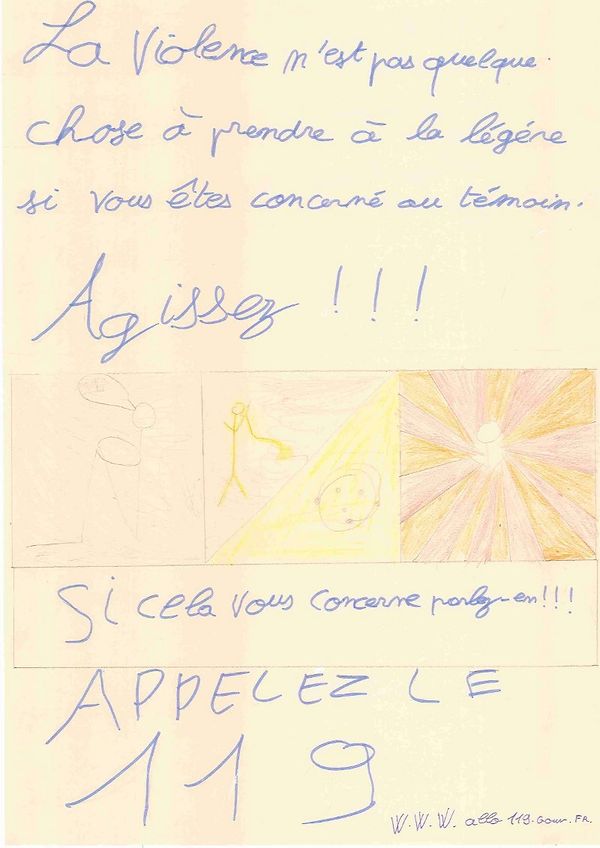 La Violence n'est pas quelque
chose à prendre à la légére
si vous êtes concerné ou témoin.
Agissez !!!
Si cela vous concerne parlez-en!!!
APPELEZ LE
119
W.W.W. allo 119.Gouv.FR.